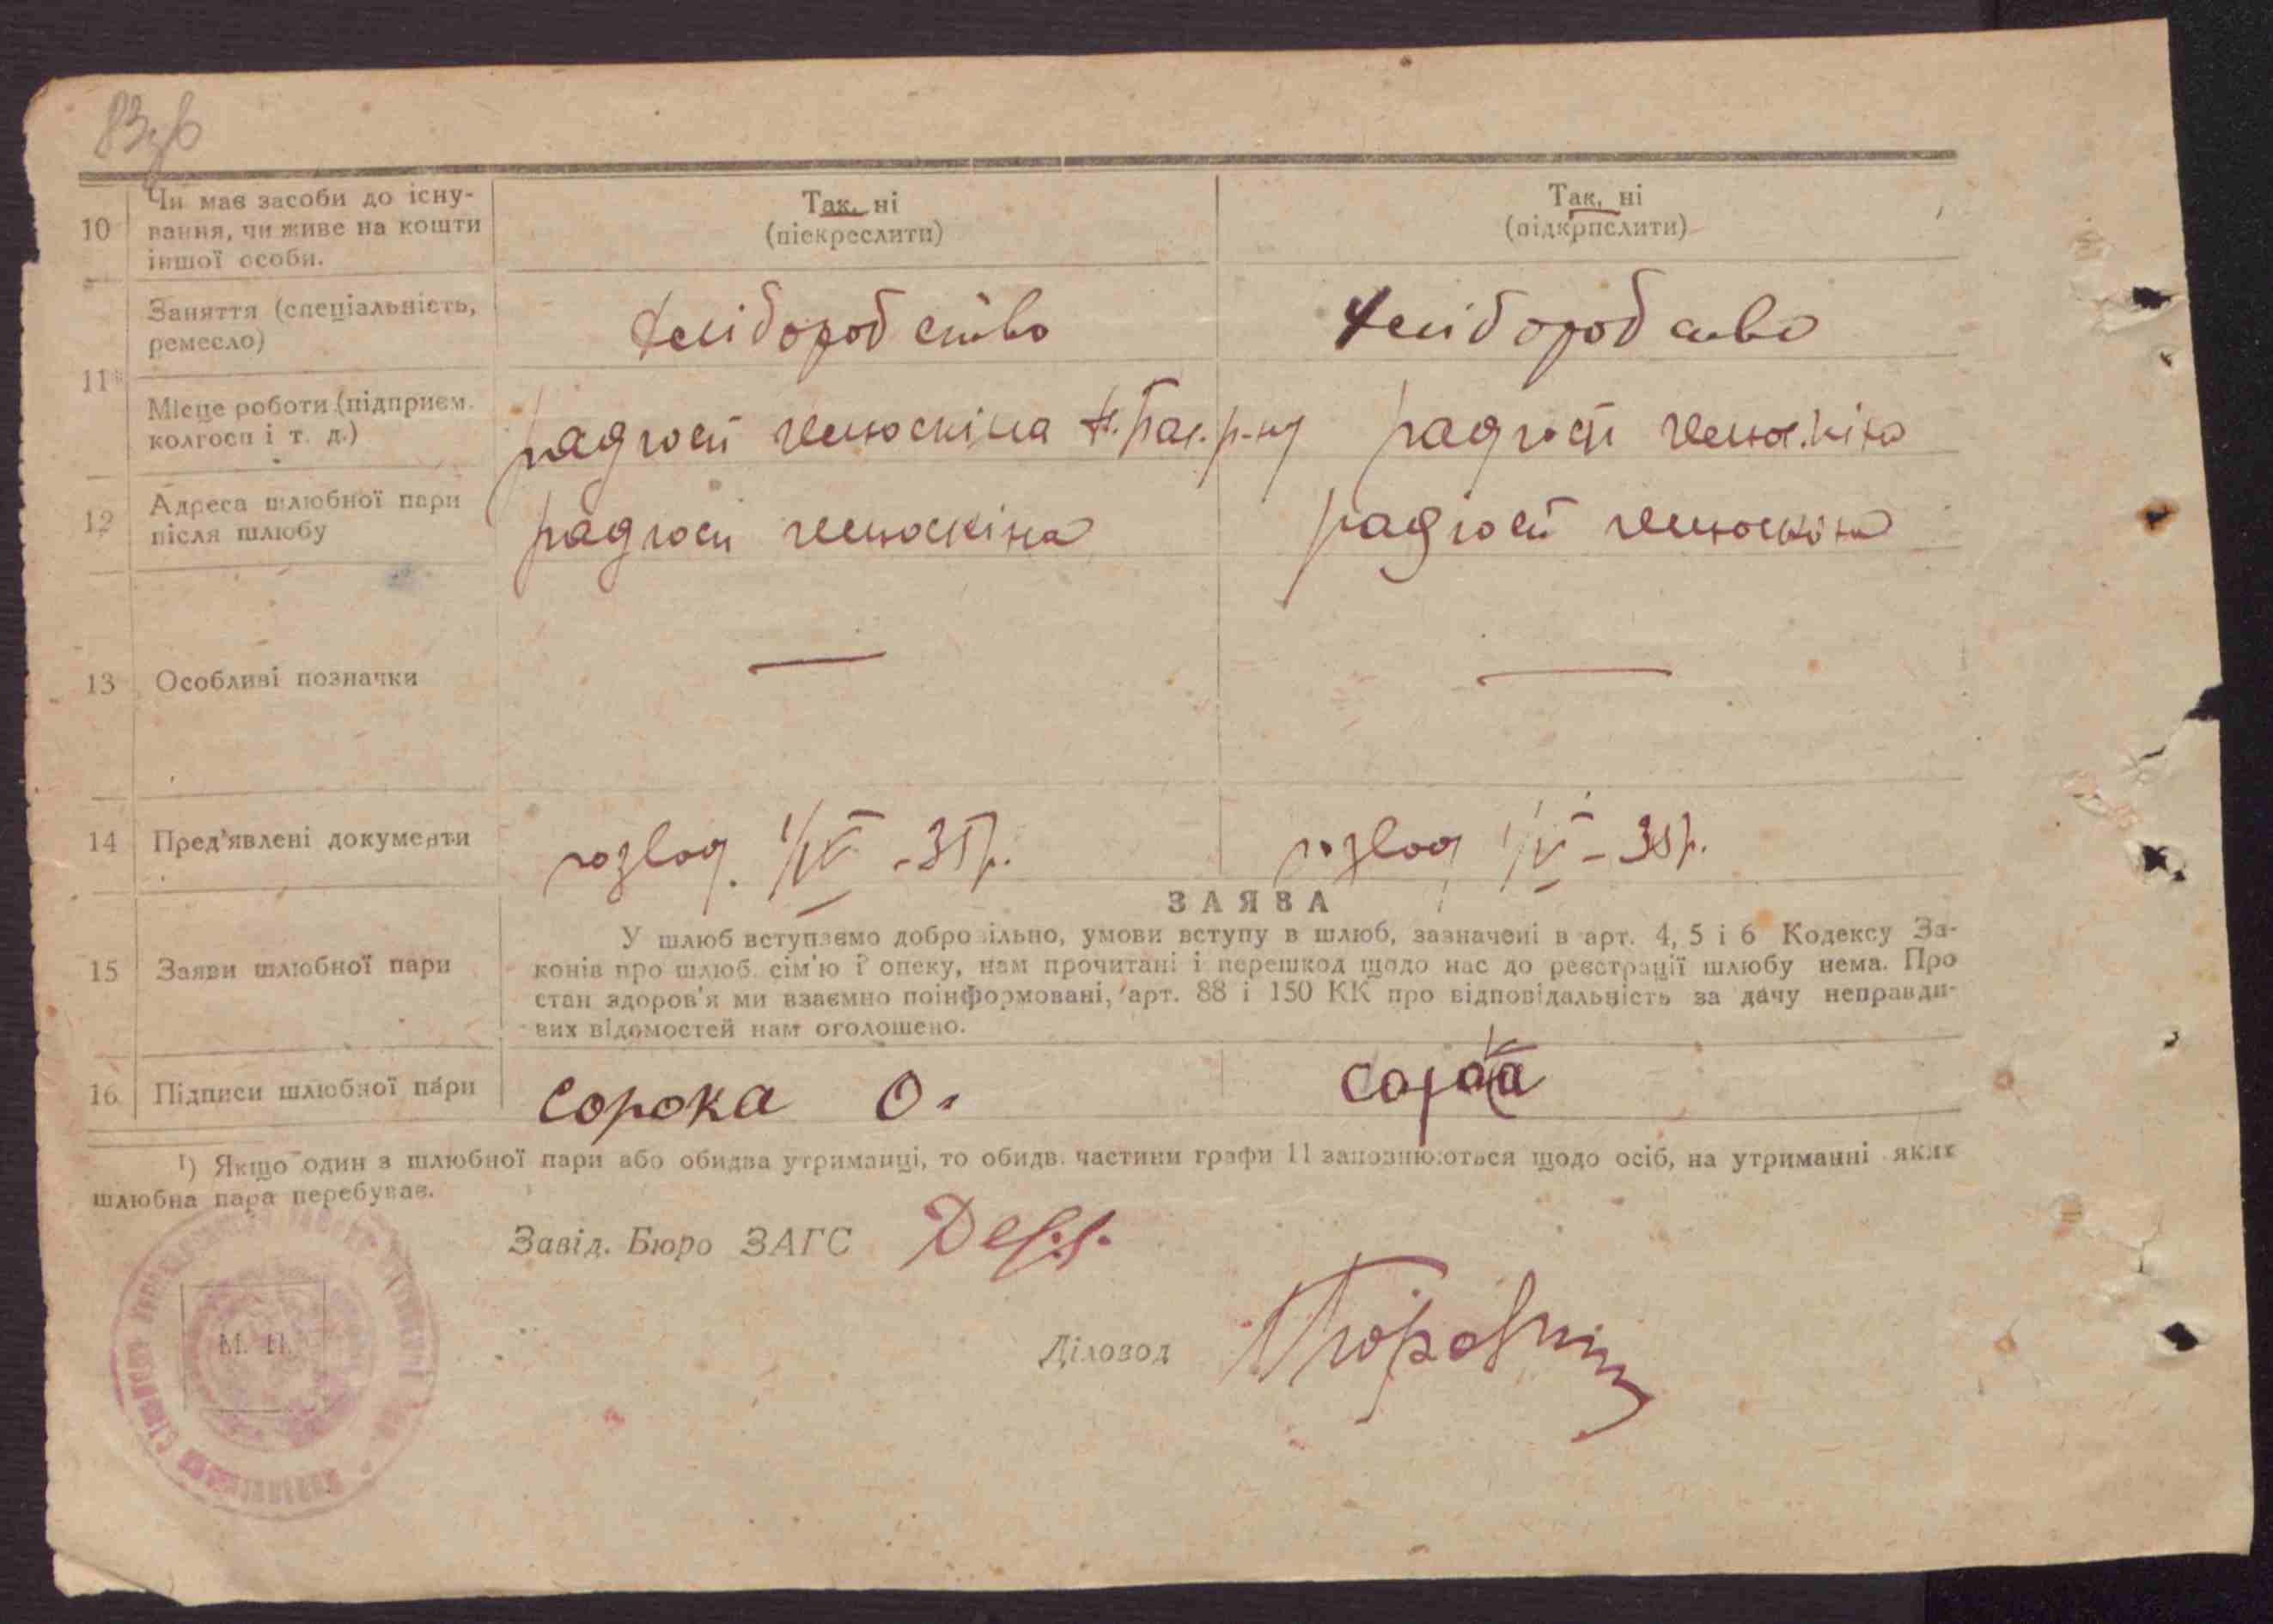 83зв
10
Чи має засоби до існу-
вання, чи живе на кошти
іншої особи.
Так, ні
(піекреслити)
Так, ні
(підкрпслити)
11
Заняття (спеціальність,
ремесло)
хліборобство
хліборобство
Місце роботи (підприєм.
колгосп і т. д.)
радгосп челюскіна р-ну
радгосп челюскіна
12
Адреса шлюбної пари
після шлюбу
радгосп челюскіна
радгосп челюскіна
13
Особливі позначки
—
—
14
Пред'явлені документи
розвод. 1/IV - 35р.
розвод 1/IV - 35р.
ЗАЯВА
15
Заяви шлюбної пари
У шлюб вступаємо добровільно, умови вступу в шлюб, зазначені в арт. 4, 5 і 6 Кодексу За-
конів про шлюб, сім'ю і опеку, нам прочитані і перешкод щодо нас до реєстрації шлюбу нема. Про
стан здоров'я ми взаємно поінформовані, арт. 88 і 150 КК про відповідальність за дачу неправди-
вих відомостей нам оголошено.
16
Підписи шлюбної пари
Сорока О.
Сорока
1) Якщо один з шлюбної пари або обидва утриманці, то обидв. частини графи 11 заповнюються щодо осіб, на утриманні яких
шлюбна пара перебуває.
Завід. Бюро ЗАГС
М. П.
Діловод